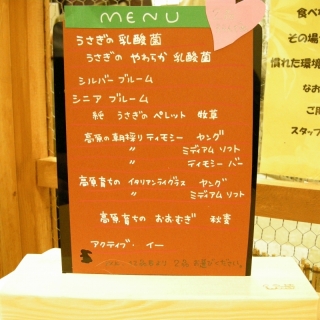 MENU
うさぎの 乳酸菌
うさぎの やわらか 乳酸菌
シルバー ブルーム
シニア ブルーム
純 うさぎの ペレット 牧草
高原の朝採り ティモシー ヤング
〃 ミディアム ソフト
〃 ティモシー バー
高原育ちの イタリアンライグラス ヤング
〃 ミディアム ソフト
高原育ちの おおむぎ 秋麦
アクティブ・イー
食べ
その場
慣れた環境
なお
ご
スタッフ